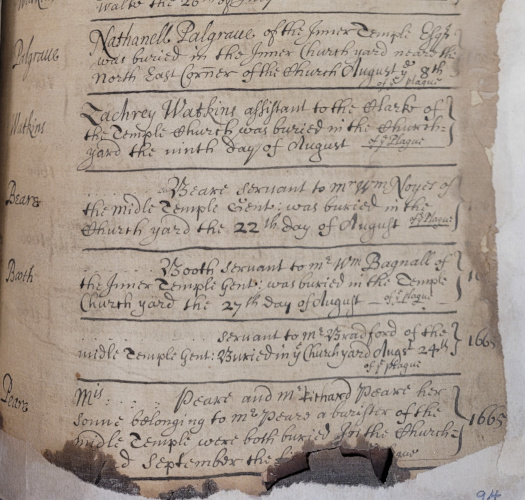 Watkins
walke the 26th of July
Palgraue
Nathanell Palgraue of the Inner Temple Esqr
was buried in the Inner Church yard neare the
North East Corner of the Church August ye 8th
of ye plague
Watkins
Zachrey Watkins assistant to the Clarke of
the Temple Church was buried in the Church-
yard the ninth day of August of ye Plague
Beare
..... Beare servant to mr Wm Noyes of
the midle Temple Gent: was buried in the
Church yard the 22th day of August of Plague
Booth
..... Booth servant to mr Wm Bagnall of
the Inner Temple Gent: was buried in the Temple
Church yard the 27th day of August - of ye plague
..... servant to Mr Bradford of the
midle Temple Gent: Buried in ye Church yard Augst 24th
of ye plague
1665
Peare
Mrs ..... Peare and mr Richard Peare her
sonne belonging to mr Peare a barister of the
midle Temple were both buried In the Church-
1665
d September the
94